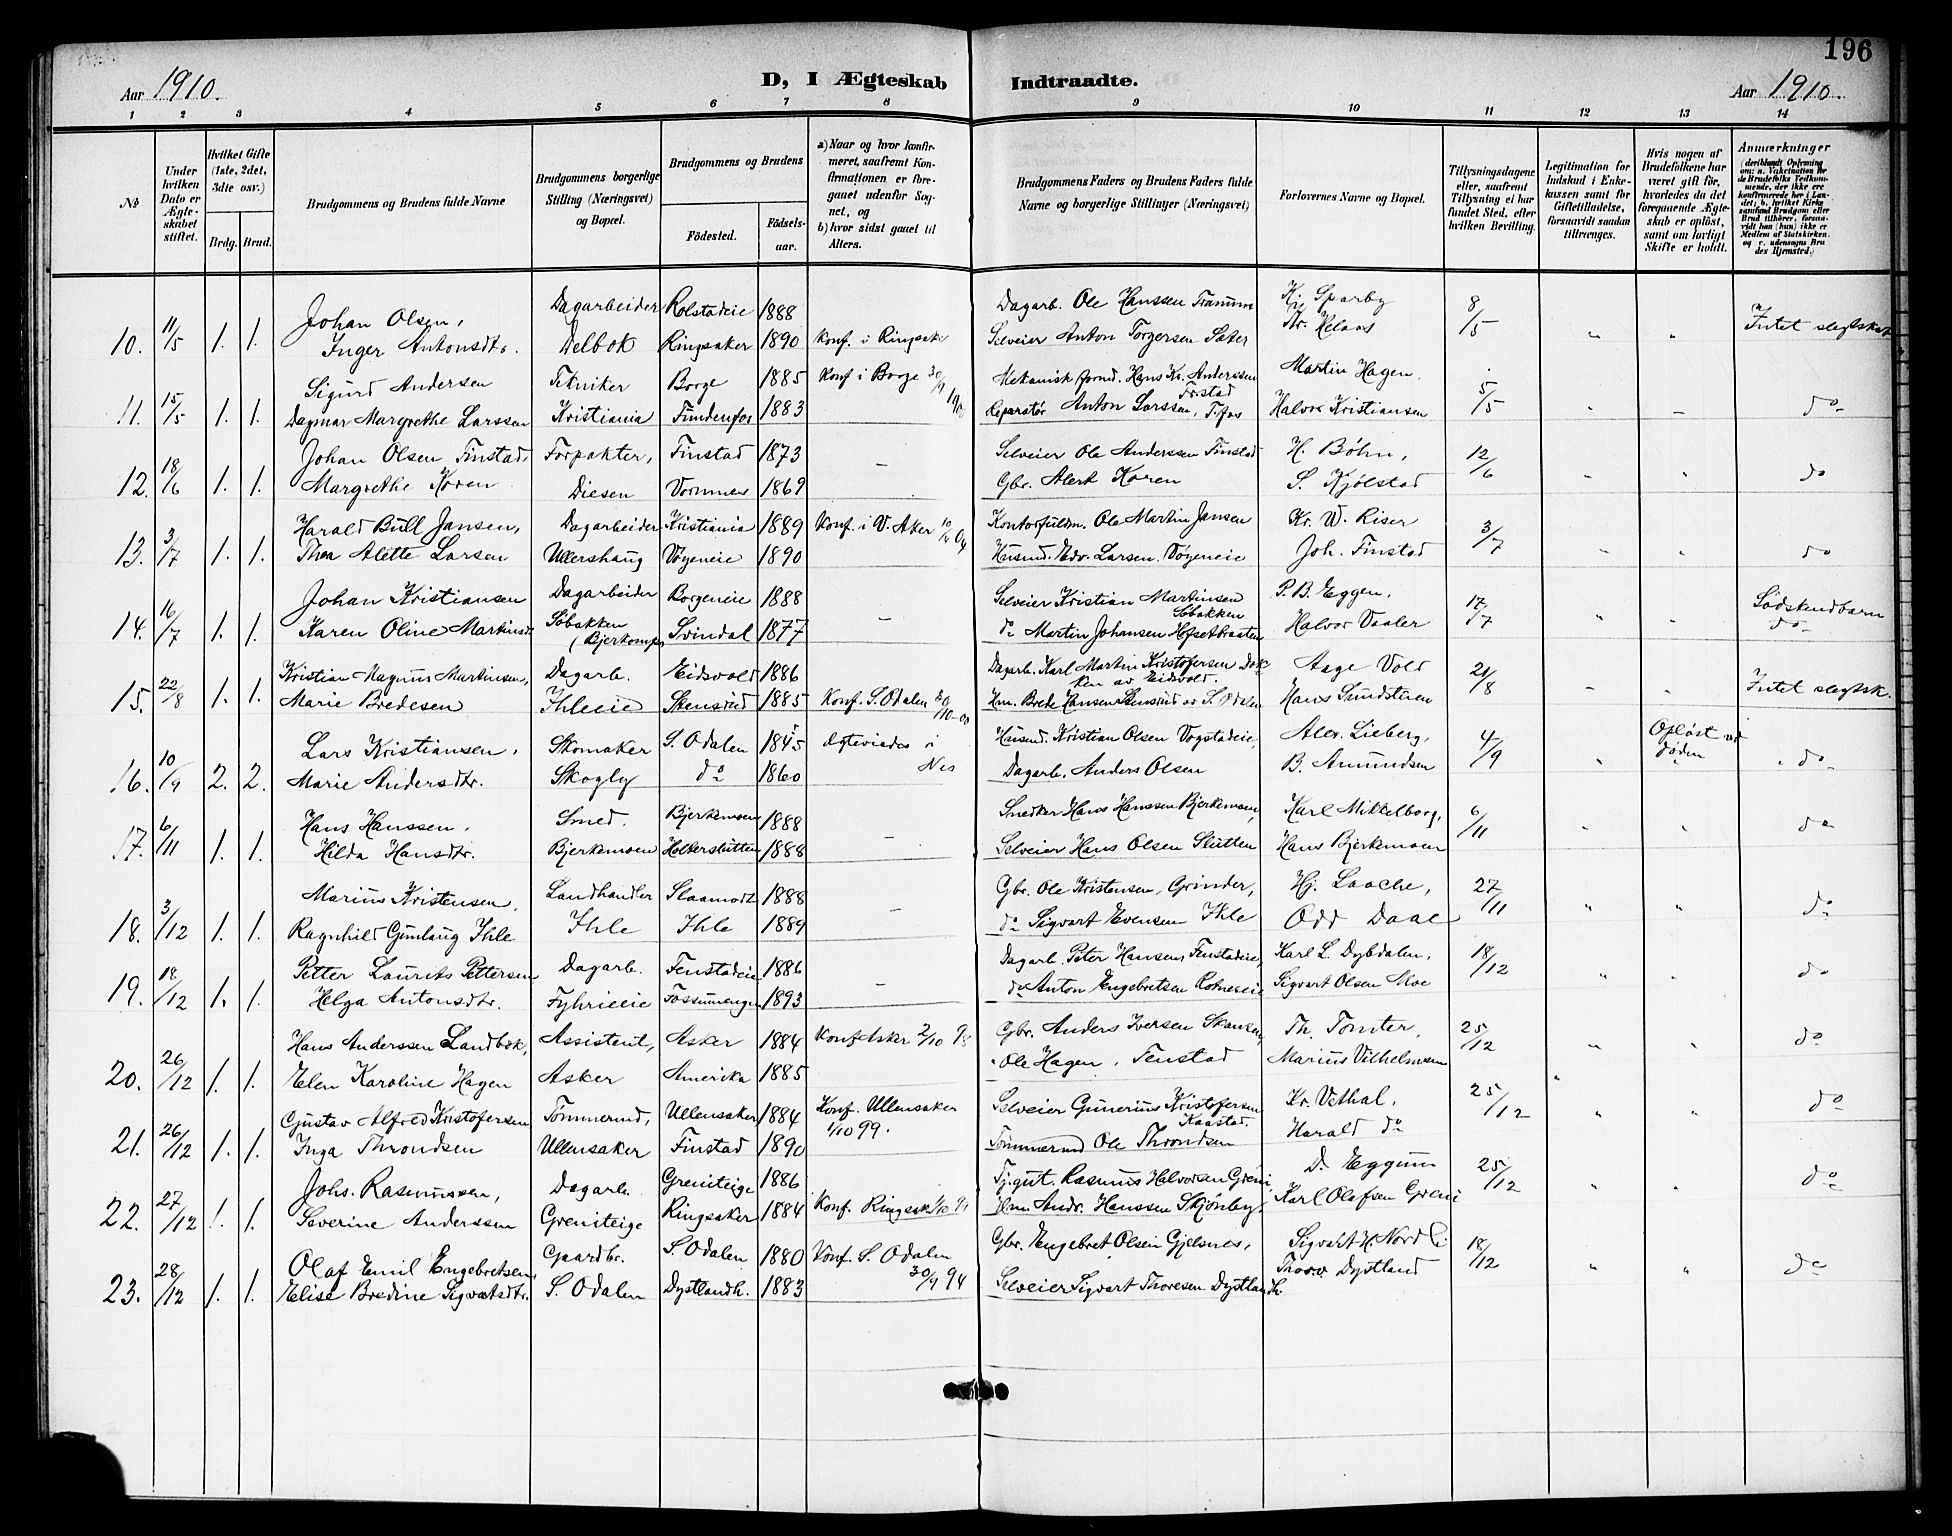 196
Aar 1910.
D, I Ægteskab Indtraadte.
Aar 1910.
1 2 3 4 5 6 7 8 9 10 11 12 13 14
No
Under hvilken Dato er Ægteskabet stiftet.
Hvilket Gifte (1ste, 2det, 3die osv.)
Brdg. Brud.
Brudgommens og Brudens fulde Navne
Brudgommens borgerlige Stilling (Næringsvei) og Bopæl.
Brudgommens og Brudens
Fødested.
Fødselsaar.
a) Naar og hvor konfirmeret, saafremt Konfirmationen er foregaaet udenfor Sognet, og
b) hvor sidst gaaet til Alters.
Brudgommens Faders og Brudens Faders fulde Navne og borgerlige Stillinger (Næringsvei)
Forlovernes Navne og Bopæl.
Tillysningsdagene eller, saafremt Tillysning ei har fundet Sted, efter hvilken Bevilling.
Legitimation for Indskud i Enkekassen samt for Giftetilladelse, forsaavidt saadan tiltrænges.
Hvis nogen af Brudefolkene har været gift før, hvorledes da det foregaaende Ægteskab er opløst, samt om lovligt Skifte er holdt.
Anmerkninger (deriblandt Oplysning om: a. Vakcination for de Brudefolks Vedkommende, der ikke ere konfirmerede her i Landet; b. hvilket Kirkesamfund Brudgom eller Brud tilhører, forsaavidt han (hun) ikke er Medlem af Statskirken, og c. udensogns Brudes Hjemsted.)
Johan Olsen, Dagarbeider Rolstadeie 1888 Dagarb. Ole Hanssen Tranum Kr. Sparby
10. 11/5 1. 1. Inger Antonsdtr. Delbok Ringsaker 1890 Konf. i Ringsaker Selveier Anton Torgersen Sæter 8/5 " " Intet slegtskab
Sigurd Andersen Tekniker Borge 1885 Konf i Borge 30/9 Mekanisk formd. Hans Kr. Anderssen Fristad Martin Hagen.
11. 15/5 1. 1. Dagmar Margrethe Larssen Kristiania 1883 Reparatør Anton Larssen, Halvor Kristiansen 5/5 " " do
Johan Olsen Finstad, Forpakter, Finstad 1873 Selveier Ole Anderssen Finstad H. Bøhn,
12. 18/6 1. 1. Margrethe Koren Diesen Vormnes 1869 – Gbr. Alert Koren S. Kjølstad 12/6 " " do
Harald Bull Jansen, Dagarbeider Kristiania 1889 Konf. i V. Aker Kontorfuldm. Ole Martin Jansen Kr. W. Riser
13. 3/7 1. 1. Thea Alette Larsen Ullershaug Vøyeneie 1890 Husmd. Edv. Larsen. Vøyeneie Joh. Finstad 3/7 " " do
Johan Kristiansen Dagarbeider Borgeneie 1888 Selveier Kristian Martinsen Søbakken P. B. Eggen,
14. 16/7 1. 1. Karen Oline Martinsd. Søbakken Svindal 1877 – do Martin Johansen Hofsetbraaten Halvor Vaaler 17/7 " " Sødskendbarn do
Kristian Magnus Martinsen, Dagarb. Eidsvold 1886 Dagarb. Karl Martin Kristofersen av Eidsvold. Aage Vold
15. 22/8 1. 1. Marie Bredesen Ihleeie Skensrud 1885 Konf. S. Odalen Hm. Brede Hansen Skensrud av S. Odalen Hans Sundstuen 21/8 " " Intet slegtsk.
Lars Kristiansen, Skomaker S. Odalen 1845 Egtevied i Nes Husmd. Kristian Olsen Vogstadeie, Alex. Lieberg, Opløst ved døden
16. 10/9 2. 2. Marie Andersdtr. Skogly do 1860 Dagarb. Anders Olsen B. Amundsen 4/9 " do
Hans Hanssen, Smed. Bjerkemoen 1888 Snedker Hans Hanssen Bjerkemoen, Karl Mikkelborg,
17. 6/11 1. 1. Hilda Hansdtr. Bjerkemoen Holterslutten 1888 – Selveier Hans Olsen Slutten Hans Bjerkemoen 6/11 " " do
Marius Kristensen, Landhandler Slaamodt 1888 Gbr. Ole Kristensen, Grinder, Hj. Laache,
18. 3/12 1. 1. Ragnhild Gunlaug Ihle Ihle Ihle 1889 – do Sigvart Evensen Ihle Odd Daae 27/11 " " do
Petter Laurits Pettersen Dagarb. Fenstadeie 1886 Dagarb. Peter Hansen, Fenstadeie, Karl L. Dybdalen,
19. 18/12 1. 1. Helga Antonsdtr. Fyhrieie Fossumengen 1893 – do Anton Engebretsen Rotneseie Sigvart Olsen Moe 18/12 " " do
Hans Anderssen Landbøk, Assistent, Asker 1884 Konf Asker 2/10 98 Gbr. Anders Iversen Skansen, Th. Tomter,
20. 26/12 1. 1. Elen Karoline Hagen Asker Amerika 1885 " Ole Hagen, Fenstad Marius Vilhelmsen 25/12 " " do
Gustav Alfred Kristofersen Tømmermd, Ullensaker 1884 Konf. Ullensaker 1/10 99. Selveier Gunerius Kristofersen Kaastad. Kr. Vethal,
21. 26/12 1. 1. Inga Throndsen Ullensaker Finstad 1890 Tømmermd Ole Throndsen Harald do 25/12 " " do
Johs. Rasmussen, Dagarb. Greniteige 1886 Tj.gut. Rasmus Halvorsen Greni, D. Eggum
22. 27/12 1. 1. Severine Anderssen Greniteige Ringsaker 1884 Konf. Ringsak Hm. Andr. Hanssen Skjønby, Karl Olafsen Greni 25/12 " " do
Olaf Emil Engebretsen, Gaardbr. S. Odalen 1880 Konf. S. Odalen 30/9 94 Gbr. Engebret Olsen Gjelsnes, Sigvart H. Nordli
23. 28/12 1. 1. Elise Bredine Sigvatsdtr. S. Odalen Dystlandh. 1883 Selveier Sigvart Thoresen Dystlandh. Thorv. Dystland 18/12 " " do